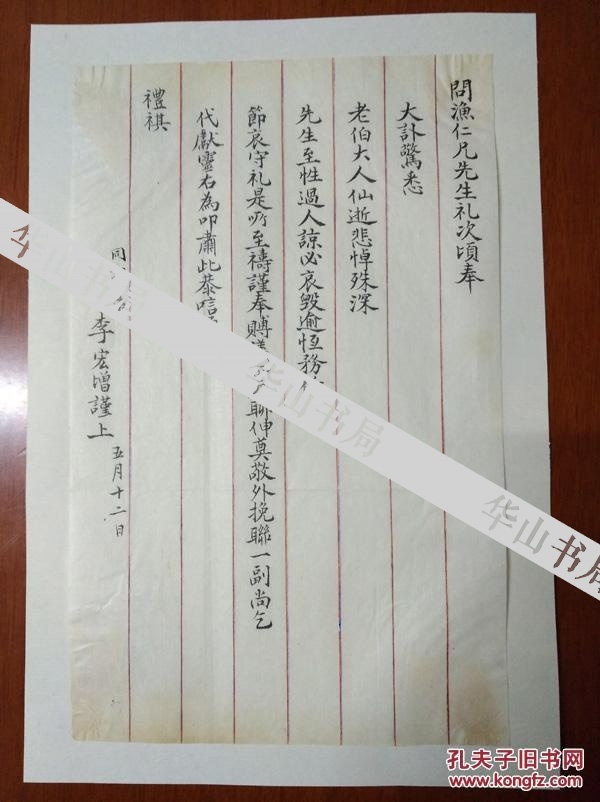 問漁仁兄先生礼次頃奉
大訃驚悉
老伯大人仙逝悲悼殊深
先生至性過人諒必哀毀逾恆務
節哀守礼是所至禱謹奉賻 聊伸奠敬外挽聯一副尚乞
代獻靈右為叩肅此恭唁
禮祺
李宏增謹上
五月十二日
华山书局
华山书局
华山书局
孔夫子旧书网
www.kongfz.com